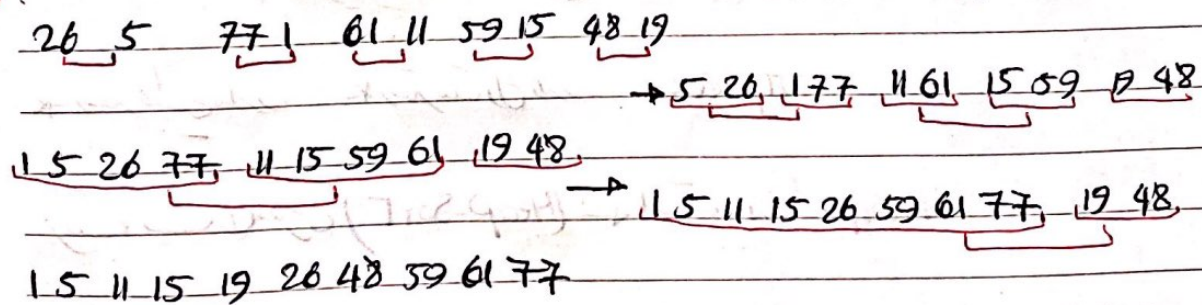 26 5 77 1 61 11 59 15 48 19
→ 5 26 1 77 11 61 15 59 19 48
1 5 26 77 11 15 59 61 19 48
→ 1 5 11 15 26 59 61 77 19 48
1 5 11 15 19 26 48 59 61 77